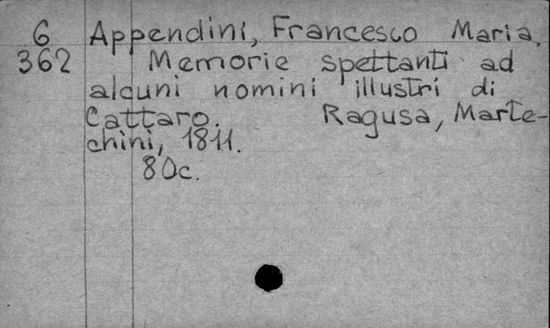 6 Appendini, Francesco Maria.
362 Memorie spettanti ad
alcuni nomini illustri di
Cattaro. Ragusa, Marte-
chini, 1811.
80c.